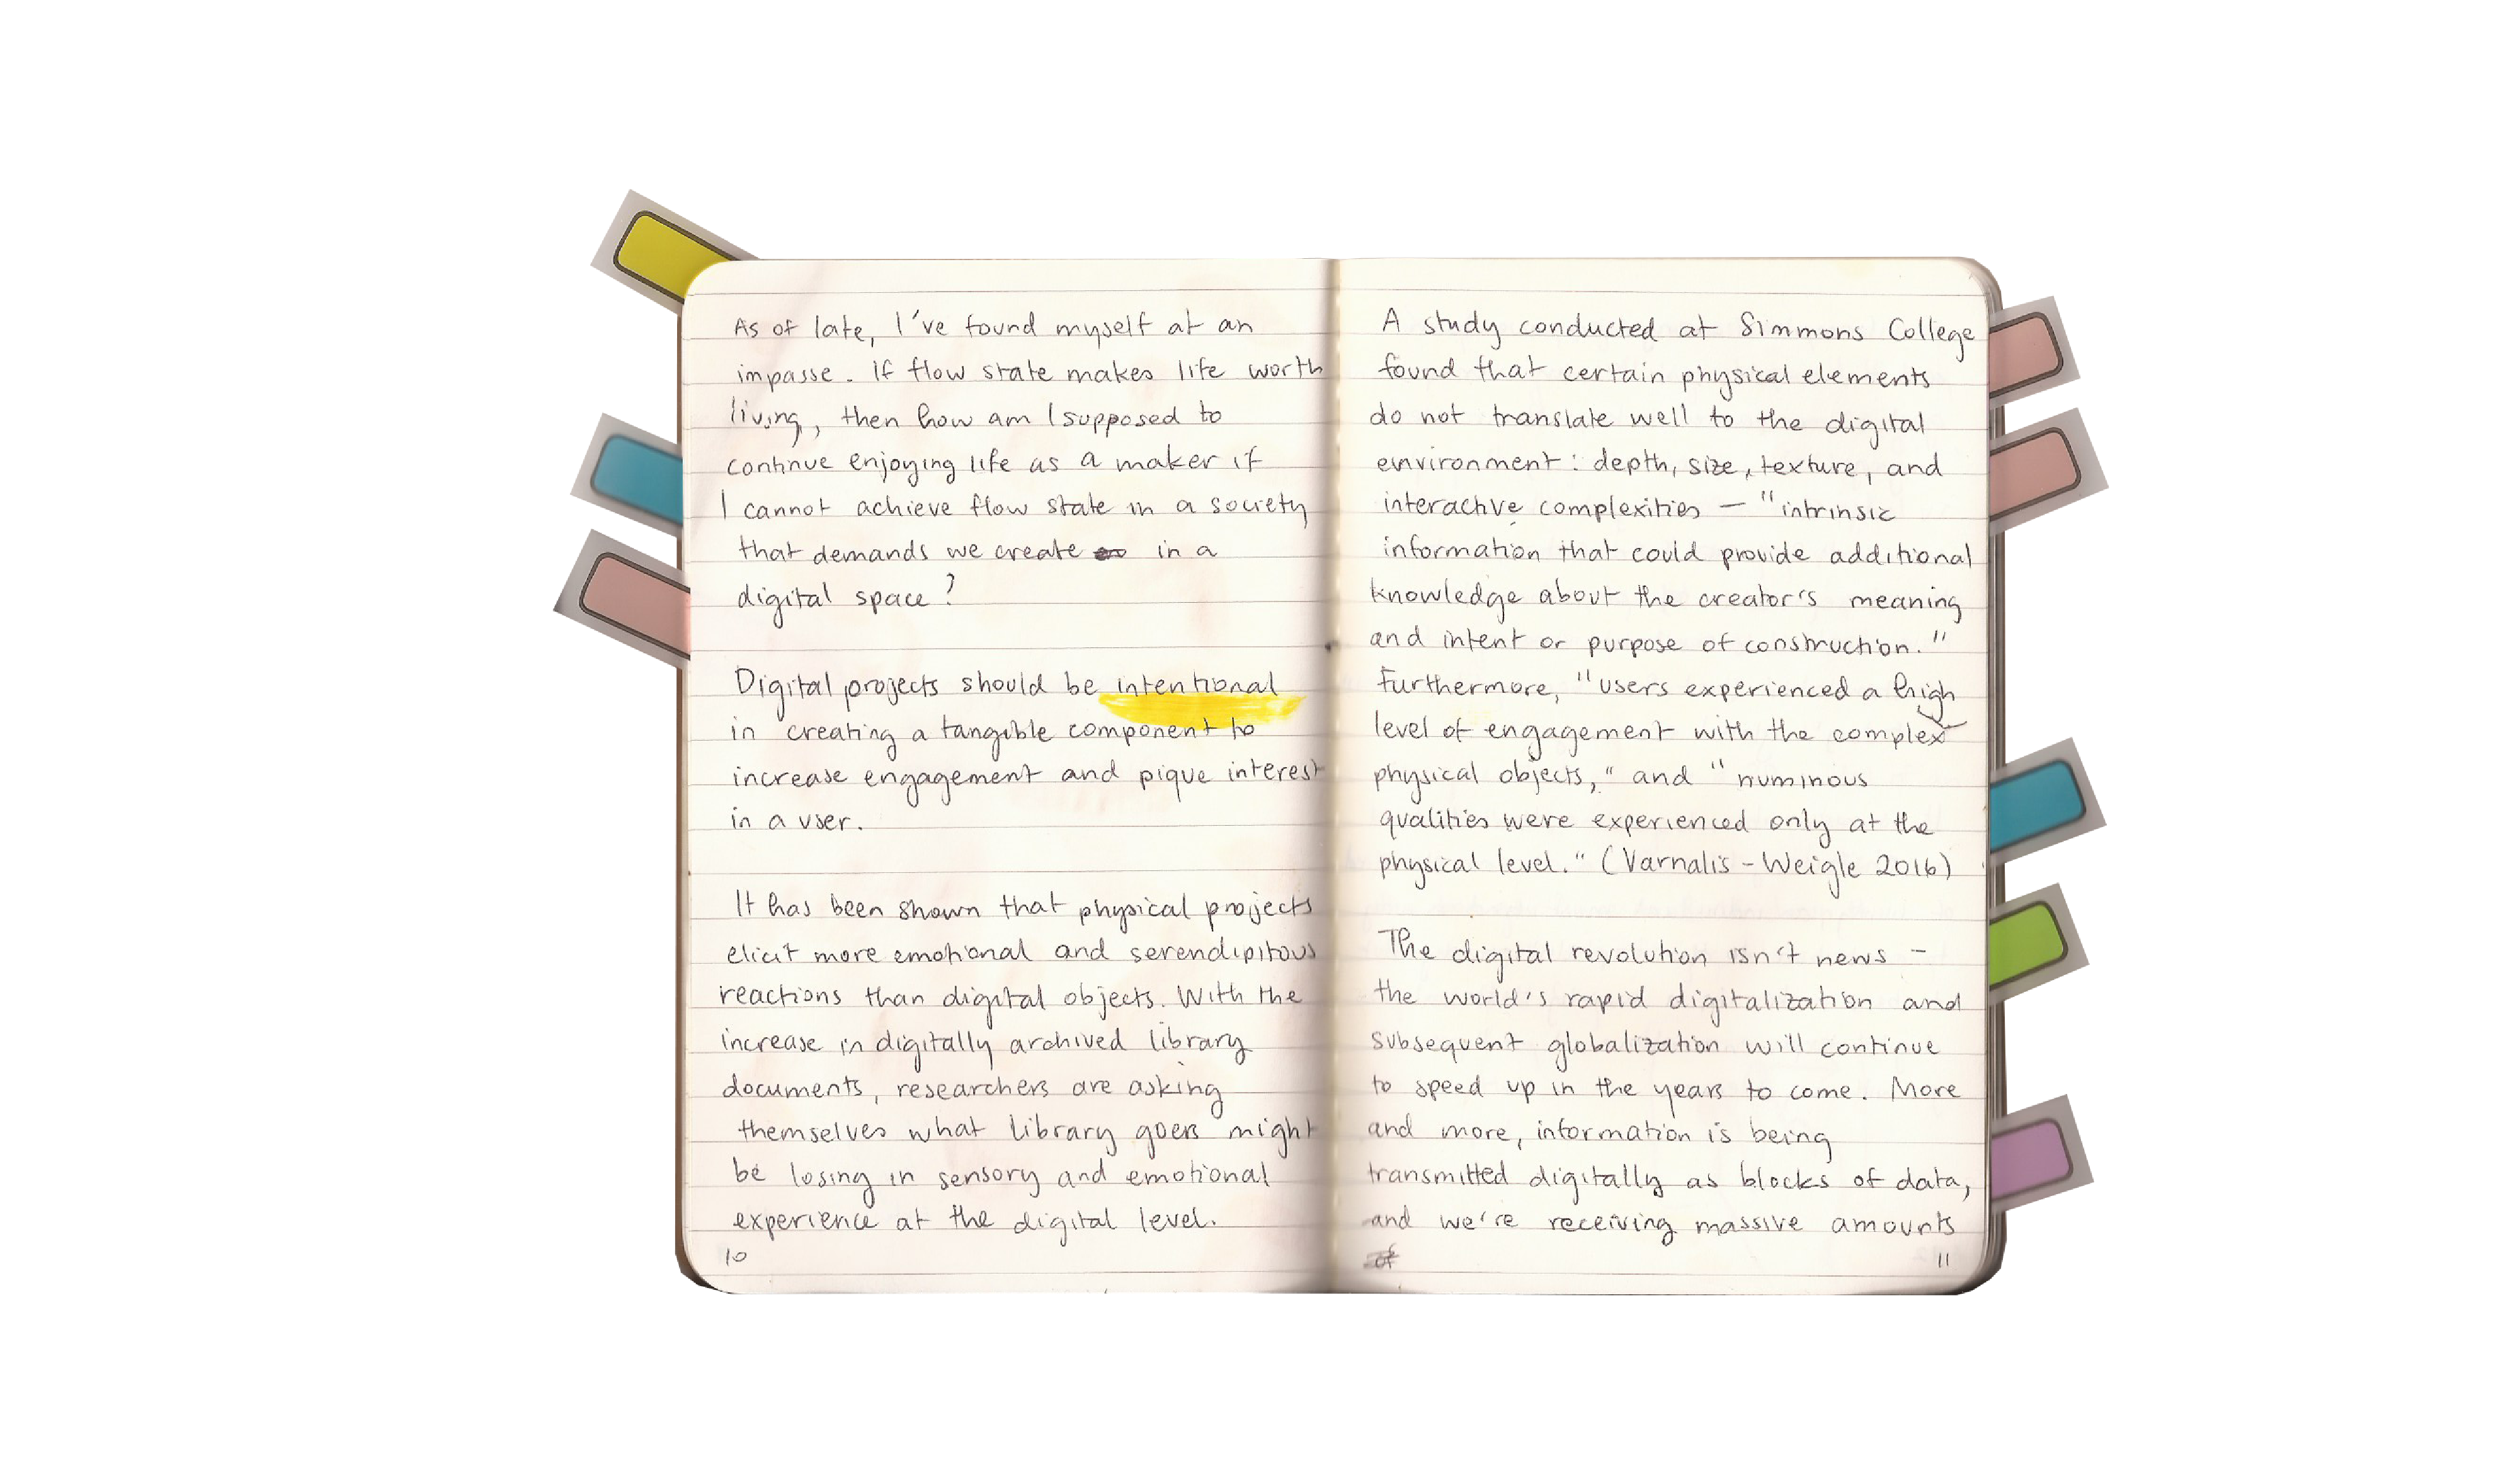 As of late, I've found myself at an
impasse. If flow state makes life worth
living, then how am I supposed to
continue enjoying life as a maker if
I cannot achieve flow state in a society
that demands we create in a
digital space?
Digital projects should be intentional
in creating a tangible component to
increase engagement and pique interest
in a user.
It has been shown that physical projects
elicit more emotional and serendipitous
reactions than digital objects. With the
increase in digitally archived library
documents, researchers are asking
themselves what library goers might
be losing in sensory and emotional
experience at the digital level.
10
A study conducted at Simmons College
found that certain physical elements
do not translate well to the digital
environment: depth, size, texture, and
interactive complexities — "intrinsic
information that could provide additional
knowledge about the creator's meaning
and intent or purpose of construction."
Furthermore, "users experienced a high
level of engagement with the complex
physical objects," and "numinous
qualities were experienced only at the
physical level." (Varnalis-Weigle 2016)
The digital revolution isn't news -
the world's rapid digitalization and
subsequent globalization will continue
to speed up in the years to come. More
and more, information is being
transmitted digitally as blocks of data,
and we're receiving massive amounts
of
11